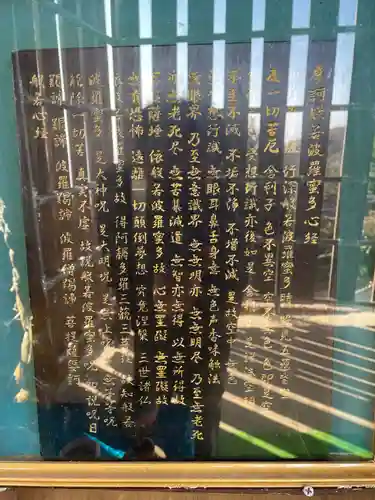 摩訶般若波羅蜜多心経
行深般若波羅蜜多時 照見五蘊皆空
度一切苦厄 舎利子 色不異空 空不異色 色即是空
受想行識亦復如是 舎利子 是諸法空相
不生不滅 不垢不浄 不増不減 是故空中 無色
無受想行識 無眼耳鼻舌身意 無色声香味触法
無眼界 乃至無意識界 無無明亦 無無明尽 乃至無老死
亦無老死尽 無苦集滅道 無智亦無得 以無所得故
菩提薩埵 依般若波羅蜜多故 心無罣礙 無罣礙故
無有恐怖 遠離一切顛倒夢想 究竟涅槃 三世諸仏
依般若波羅蜜多故 得阿耨多羅三藐三菩提 故知般若
波羅蜜多 是大神呪 是大明呪 是無上呪 是無等等呪
能除一切苦 真実不虚 故説般若波羅蜜多呪 即説呪曰
羯諦 羯諦 波羅羯諦 波羅僧羯諦 菩提薩婆訶
般若心経